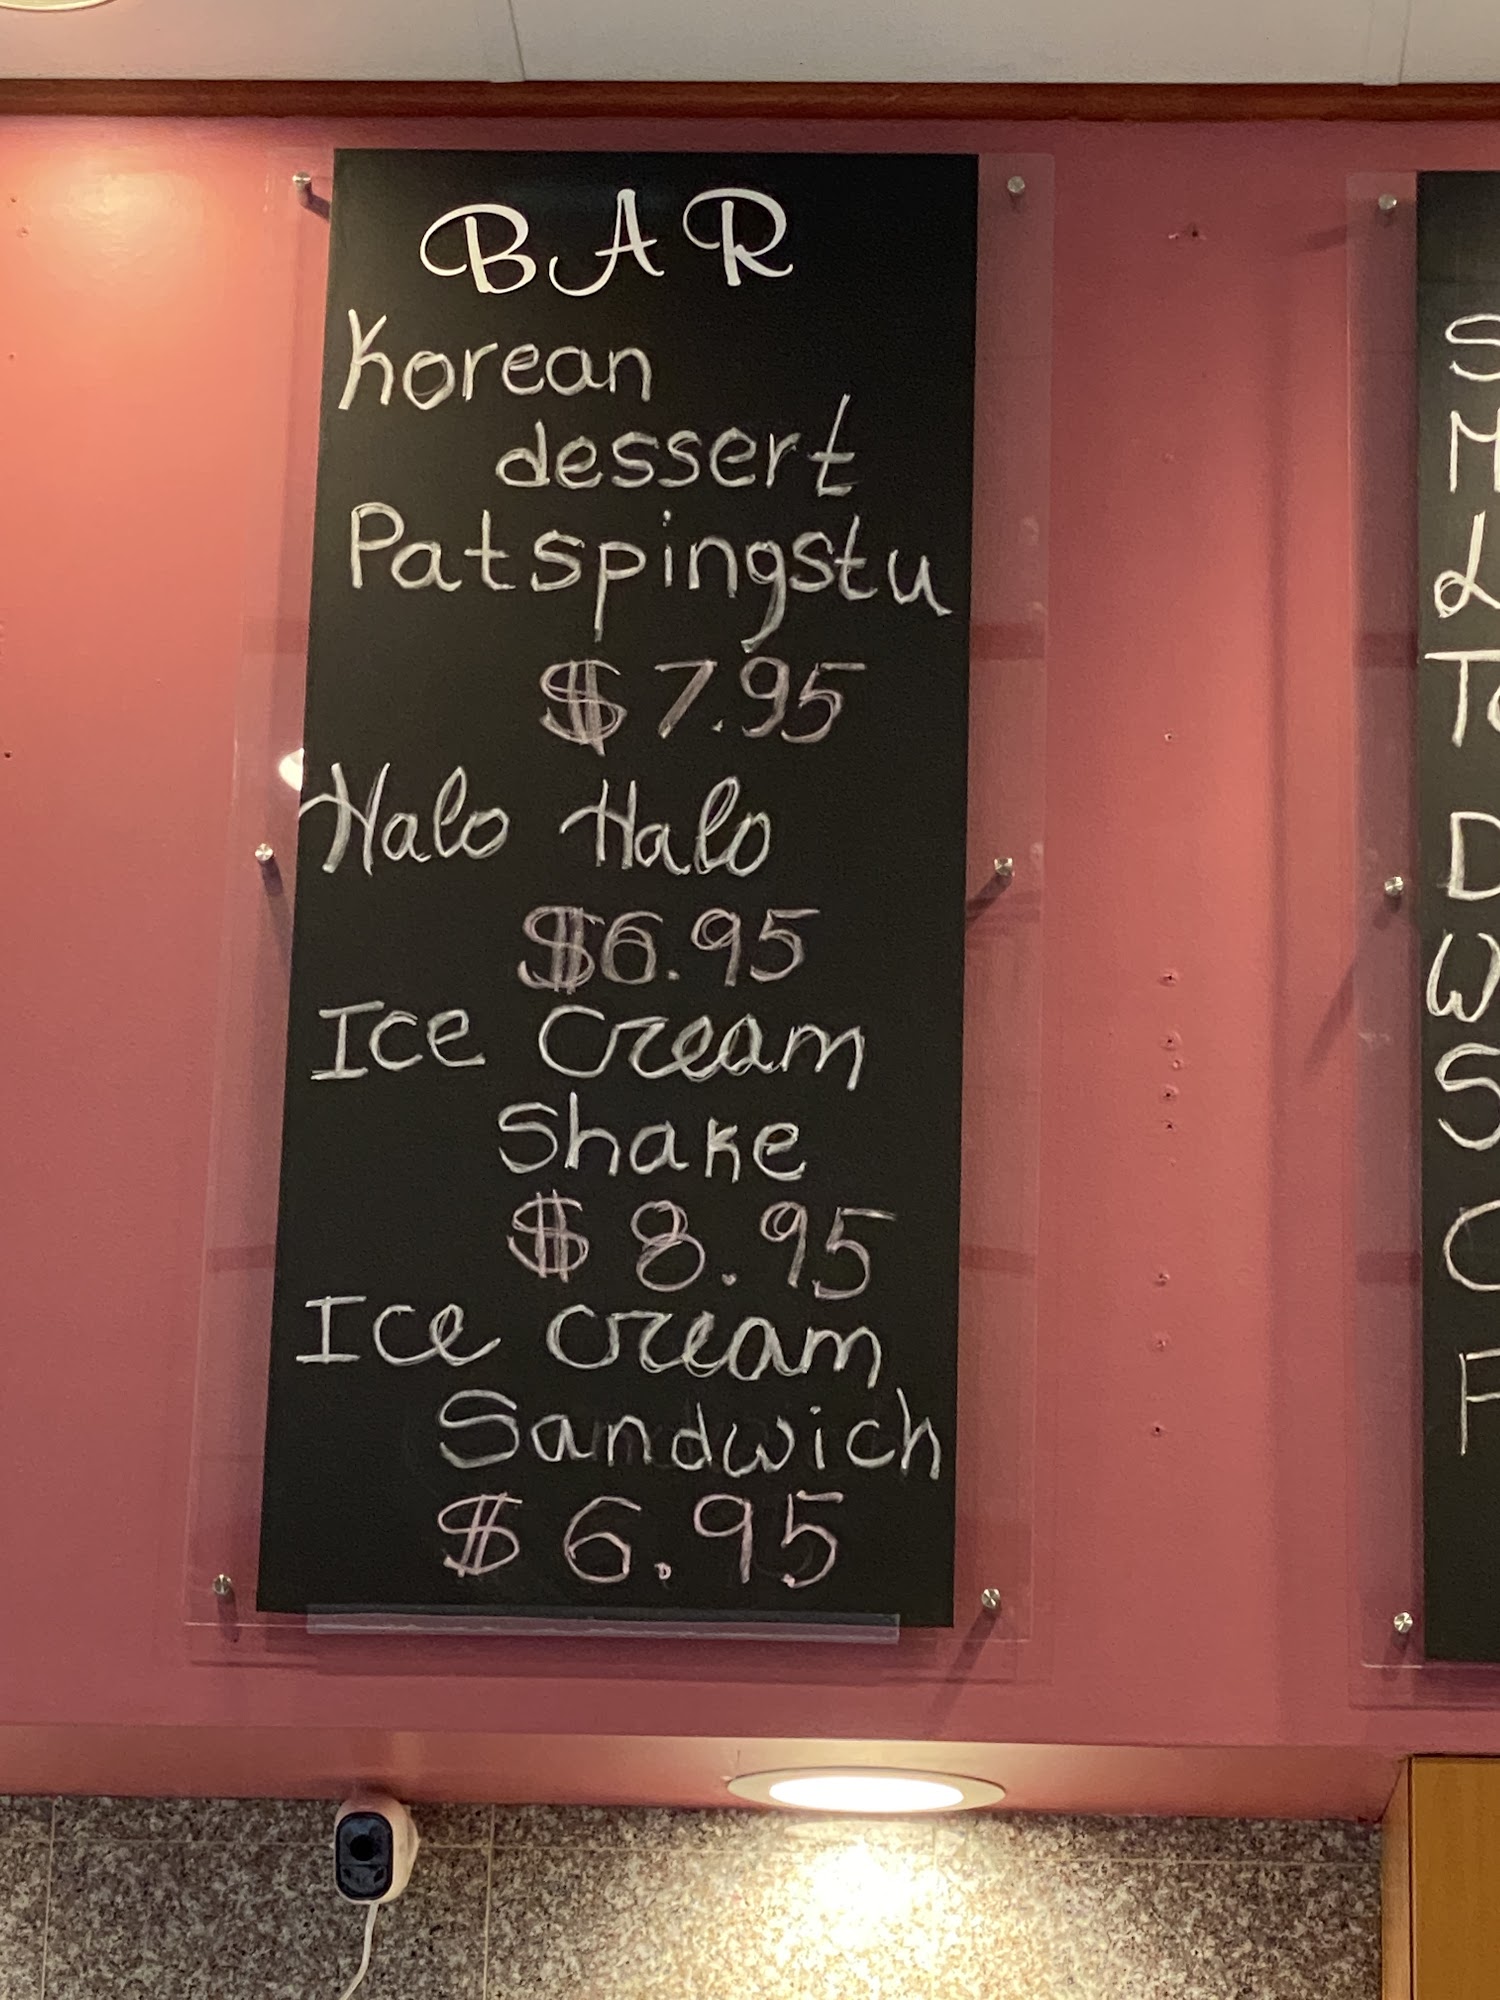 BAR
Korean
dessert
Patspingstu
$7.95
Halo Halo
$6.95
Ice Cream
Shake
$8.95
Ice cream
Sandwich
$6.95